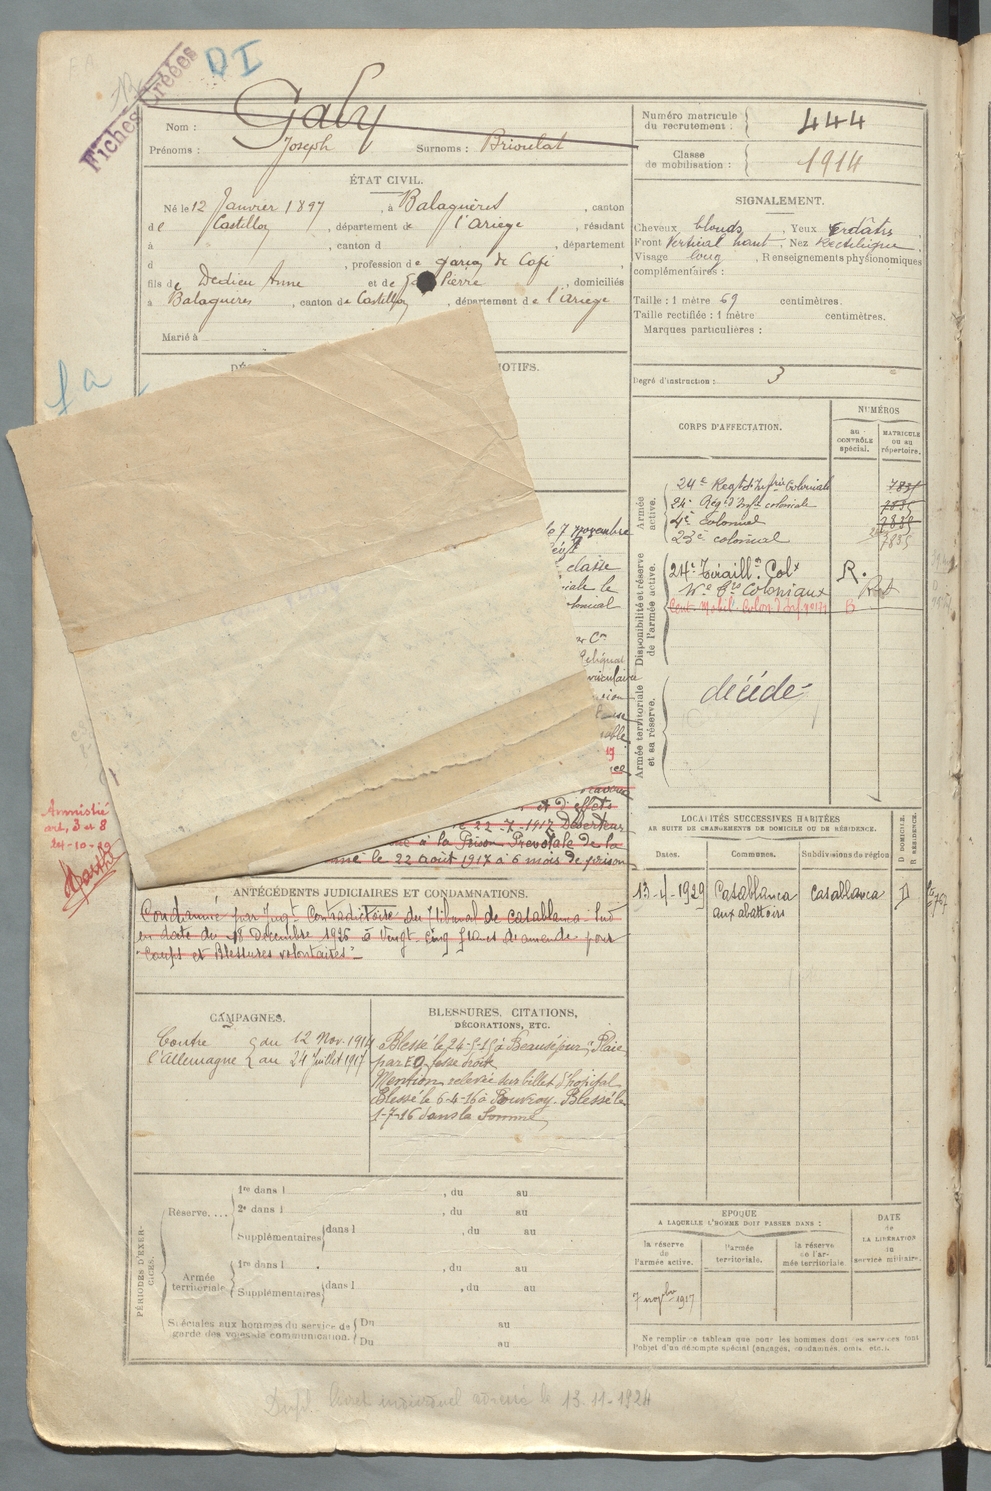 DI
Fiches Créées
Nom : Galy
Prénoms : Joseph Surnoms : Brioulat
Numéro matricule du recrutement : 444
Classe de mobilisation : 1914
ÉTAT CIVIL.
Né le 12 Janvier 1897, à Balaguères, canton
de Castillon, département de l'Ariège, résidant
à , canton d , département
d , profession de garçon de Café
fils de Dedieu Anne et de Pierre, domiciliés
à Balaguères, canton de Castillon, département de l'Ariège
Marié à
SIGNALEMENT.
Cheveux blonds, Yeux verdâtres
Front Vertical haut, Nez Rectiligne
Visage long, Renseignements physionomiques
complémentaires :
Taille : 1 mètre 69 centimètres.
Taille rectifiée : 1 mètre centimètres.
Marques particulières :
Degré d'instruction : 3
MOTIFS.
le 7 novembre
classe
iale le
et d'effets
le 22-7-1917 Déserteur
à la Prison Prévotale de la
le 22 août 1917 à 6 mois de prison
CORPS D'AFFECTATION.
NUMÉROS
au CONTRÔLE spécial.
MATRICULE ou au répertoire.
Armée active.
24e Regt d'Infrie Coloniale 7835
24e Rég. d'Infie coloniale 7835
4e Colonial 7835
23e colonial 7835
Disponibilité et réserve de l'armée active.
24e Tiraill. Colx R.
Coloniaux
Cent. Mobil. Colon. B
Armée territoriale et sa réserve.
décédé
Amnistié
art. 3 et 8
ANTÉCÉDENTS JUDICIAIRES ET CONDAMNATIONS.
Condamné par Jugt Contradictoire du Tribunal de Casablanca - Sud
en date du 18 Décembre 1926 à Vingt-cinq francs d'amende pour
"Coups et Blessures volontaires"
LOCALITÉS SUCCESSIVES HABITÉES
PAR SUITE DE CHANGEMENTS DE DOMICILE OU DE RÉSIDENCE.
Dates. Communes. Subdivisions de région D DOMICILE. R RÉSIDENCE.
13-4-1929 Casablanca Casablanca D
aux abattoirs
CAMPAGNES.
Contre du 12 Nov. 1914
l'Allemagne au 24 Juillet 1917
BLESSURES, CITATIONS,
DÉCORATIONS, ETC.
Blessé le à Beauséjour, Plaie
par EO fesse droite
Mention relevée sur billet d'hopital
Blessé le 6-4-16 à Blessé le
1-7-16 dans la Somme
PÉRIODES D'EXERCICES.
Réserve.... 1re dans l , du au
2e dans l , du au
Supplémentaires dans l , du au
Armée territoriale 1re dans l , du au
Supplémentaires dans l , du au
Spéciales aux hommes du service de garde des voies de communication. Du au
Du au
EPOQUE
A LAQUELLE L'HOMME DOIT PASSER DANS :
la réserve de l'armée active.
l'armée territoriale.
la réserve de l'armée territoriale
DATE de LA LIBÉRATION du service militaire.
7 novbre 1917
Ne remplir ce tableau que pour les hommes dont les services font
l'objet d'un décompte spécial (engagés, condamnés, omis, etc.).
Dupl. livret individuel le 13-11-1924